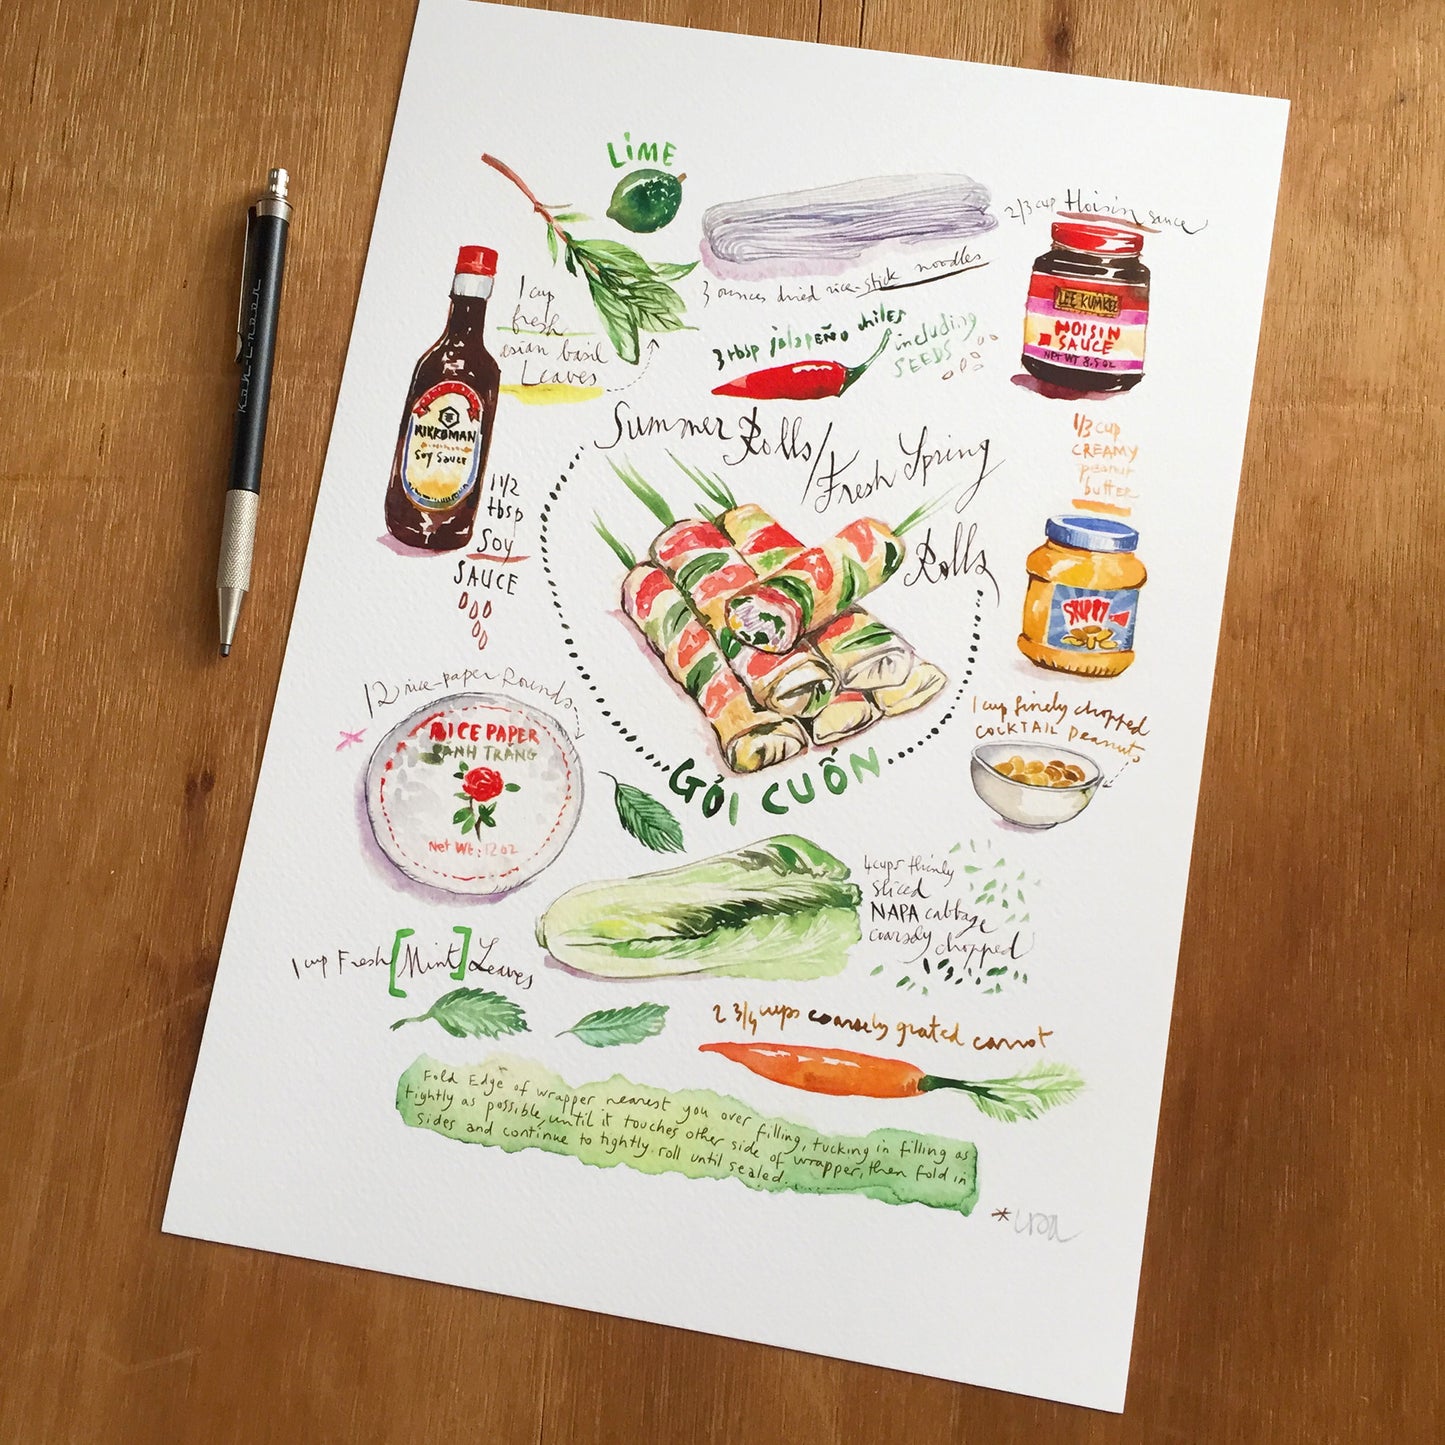 LiME
2/3 cup Hoisin sauce
3 ounces dried rice-stick noodles
1 cup
fresh
asian basil
Leaves
3 tbsp jalapEÑo chiles
including
SEEDS
LEE KUM KEE
HOISIN
SAUCE
NET WT 8.5 oz
KIKKOMAN
Soy Sauce
1 1/2
tbsp
Soy
SAUCE
Koh-i-noor
Summer Rolls/
Fresh Spring
Rolls
GỎI CUỐN
1/3 CUP
CREAMY
peanut
butter
SKIPPY
1 cup finely chopped
COCKTAIL Peanuts
12 rice-paper Rounds
RICE PAPER
BÁNH TRÁNG
Net Wt: 12 oz
4 cups thinly
sliced
NAPA cabbage
coarsely chopped
1 cup Fresh [Mint] Leaves
2 3/4 cups coarsely grated carrot
Fold Edge of wrapper nearest you over filling, tucking in filling as
tightly as possible, until it touches other side of wrapper, then fold in
sides and continue to tightly roll until sealed.......